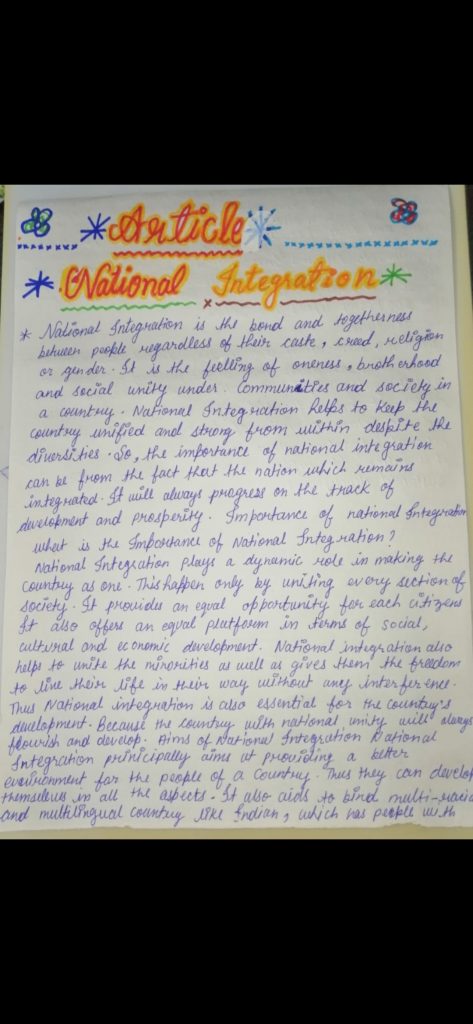 Article
National Integration
* National Integration is the bond and togetherness
between people regardless of their caste, creed, religion
or gender. It is the feeling of oneness, brotherhood
and social unity under. Communities and society in
a country. National Integration helps to keep the
country unified and strong from within despite the
diversities. So, the importance of national integration
can be from the fact that the nation which remains
integrated. It will always progress on the track of
development and prosperity. Importance of national Integration
what is the Importance of National Integration?
National Integration plays a dynamic role in making the
Country as one. This happen only by uniting every section of
society. It provides an equal opportunity for each citizens
It also offers an equal platform in terms of social,
cultural and economic development. National integration also
helps to unite the minorities as well as gives them the freedom
to live their life in their way without any interference.
Thus National integration is also essential for the country's
development. Because the country with national unity will always
flourish and develop. Aims of National Integration National
Integration principally aims at providing a better
environment for the people of a Country. Thus they can develop
themselves in all the aspects. It also aids to bind multi-racia
and multilingual country like Indian, which has people with